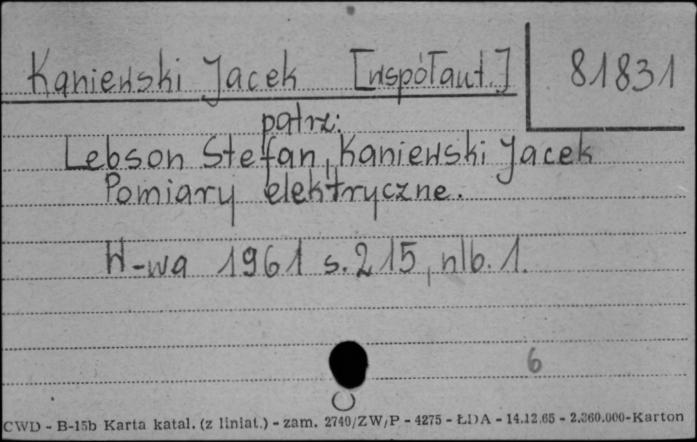 Kaniewski Jacek [współaut.] 81831
patrz:
Lebson Stefan, Kaniewski Jacek
Pomiary elektryczne.
W-wa 1961 s. 215, nlb. 1.
6
CWD - B-15b Karta katal. (z liniat.) - zam. 2740/ZW/P - 4275 - ŁDA - 14.12.65 - 2.360.000-Karton